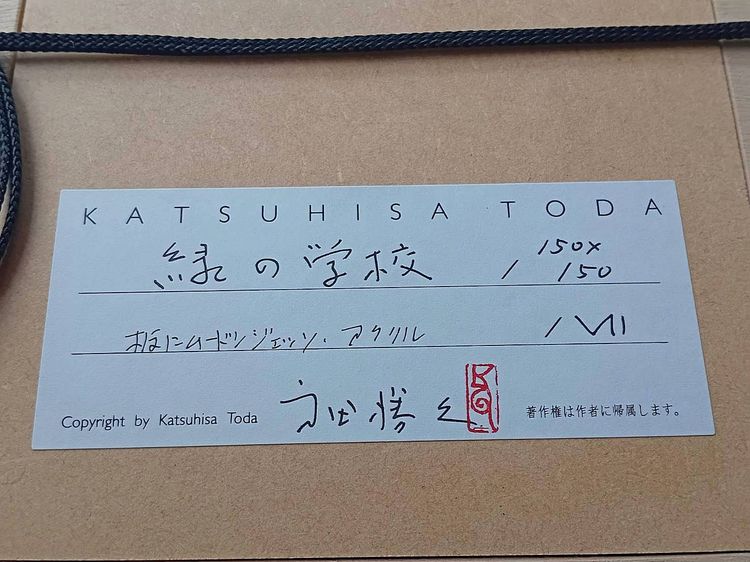 KATSUHISA TODA
緑の学校 / 150×
150
板にムードンジェッソ・アクリル / VII
Copyright by Katsuhisa Toda 戸田勝久 著作権は作者に帰属します。